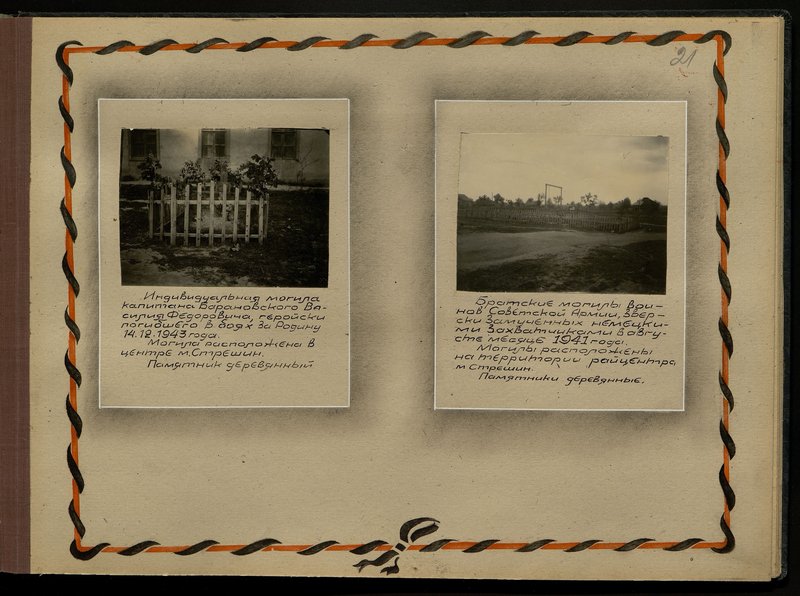 21
Индивидуальная могила
капитана Барановского Ва-
силия Фёдоровича, геройски
погибшего в боях за Родину
14.12.1943 года.
Могила расположена в
центре м.Стрешин.
Памятник деревянный
Братские могилы вои-
нов Советской Армии, звер-
ски замученных немецки-
ми захватчиками в авгу-
сте месяце 1941 года.
Могилы расположены
на территории райцентра,
м Стрешин.
Памятники деревянные.